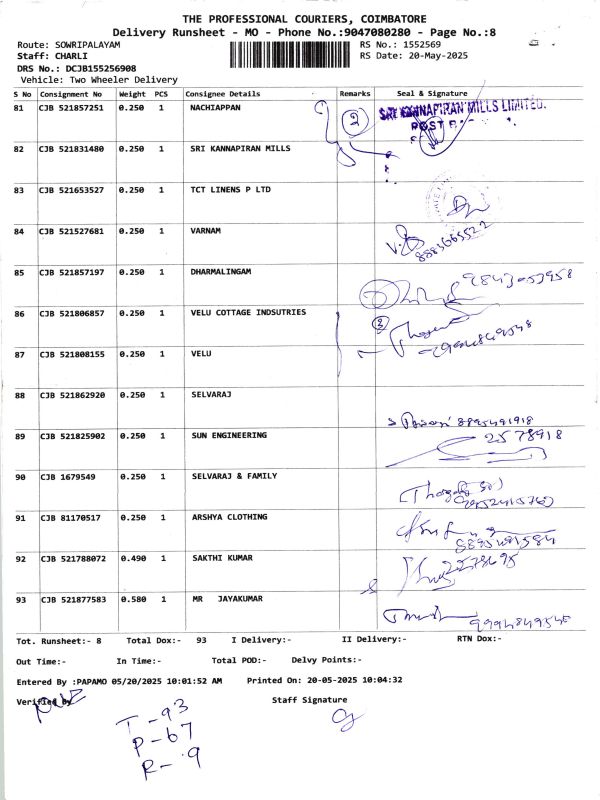 THE PROFESSIONAL COURIERS, COIMBATORE
Delivery Runsheet - MO - Phone No.:9047080280 - Page No.:8
Route: SOWRIPALAYAM
RS No.: 1552569
Staff: CHARLI
RS Date: 20-May-2025
DRS No.: DCJB155256908
Vehicle: Two Wheeler Delivery
S No Consignment No Weight PCS Consignee Details Remarks Seal & Signature
81 CJB 521857251 0.250 1 NACHIAPPAN 2 SRI KANNAPIRAN MILLS LIMITED.
82 CJB 521831480 0.250 1 SRI KANNAPIRAN MILLS
83 CJB 521653527 0.250 1 TCT LINENS P LTD
84 CJB 521527681 0.250 1 VARNAM
85 CJB 521857197 0.250 1 DHARMALINGAM
86 CJB 521806857 0.250 1 VELU COTTAGE INDSUTRIES 2
87 CJB 521808155 0.250 1 VELU
88 CJB 521862920 0.250 1 SELVARAJ 8895491918
89 CJB 521825902 0.250 1 SUN ENGINEERING 2578918
90 CJB 1679549 0.250 1 SELVARAJ & FAMILY
91 CJB 81170517 0.250 1 ARSHYA CLOTHING
92 CJB 521788072 0.490 1 SAKTHI KUMAR
93 CJB 521877583 0.580 1 MR JAYAKUMAR
Tot. Runsheet:- 8 Total Dox:- 93 I Delivery:- II Delivery:- RTN Dox:-
Out Time:- In Time:- Total POD:- Delvy Points:-
Entered By :PAPAMO 05/20/2025 10:01:52 AM Printed On: 20-05-2025 10:04:32
Verified by Staff Signature
T - 93
P - 67
R - 9